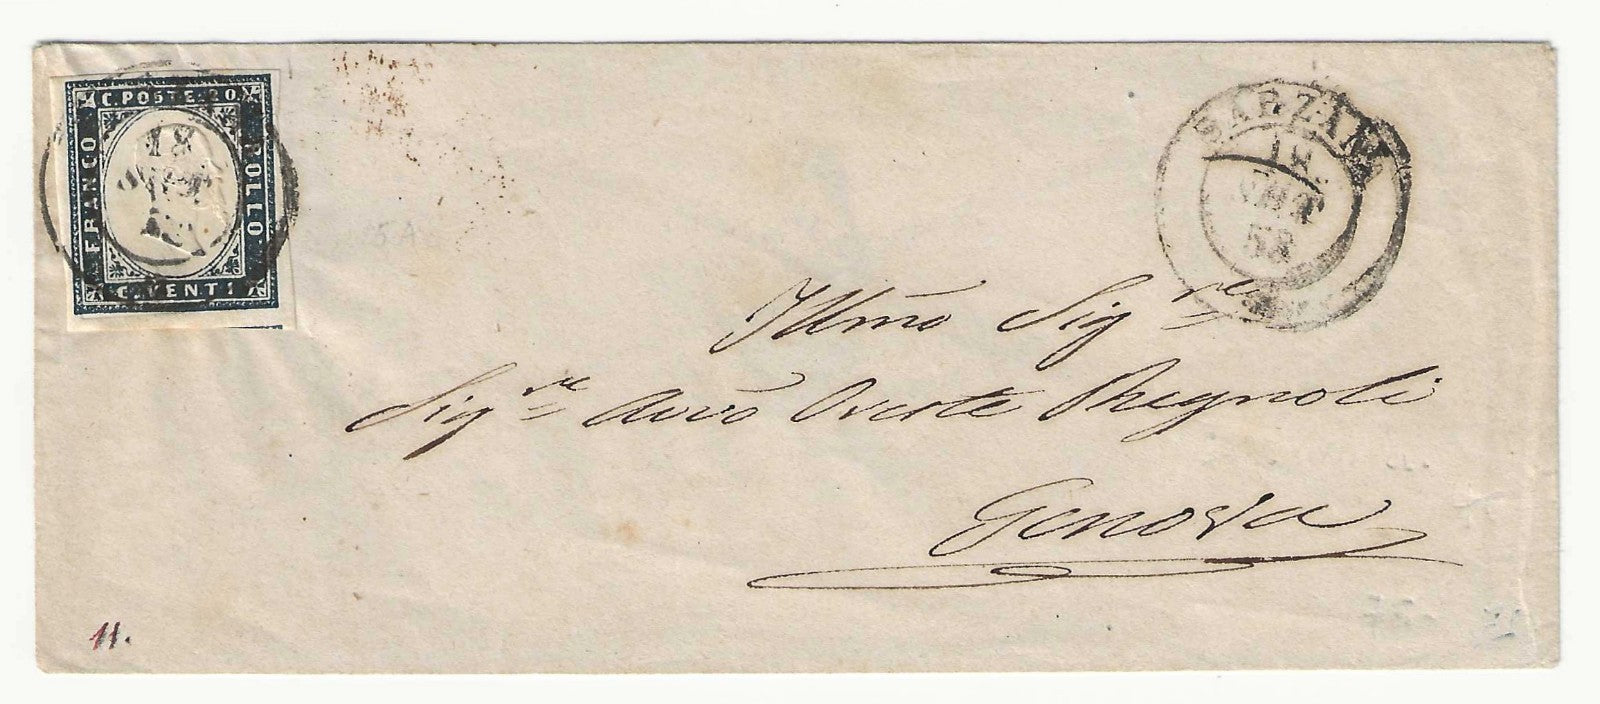 C. POSTE. 20.
FRANCO
BOLLO.
C. VENTI
18
SET
SARZANA
18
SET
58
Illmo Sigre
Sigre Avvo Oreste Regnoli
Genova
11.